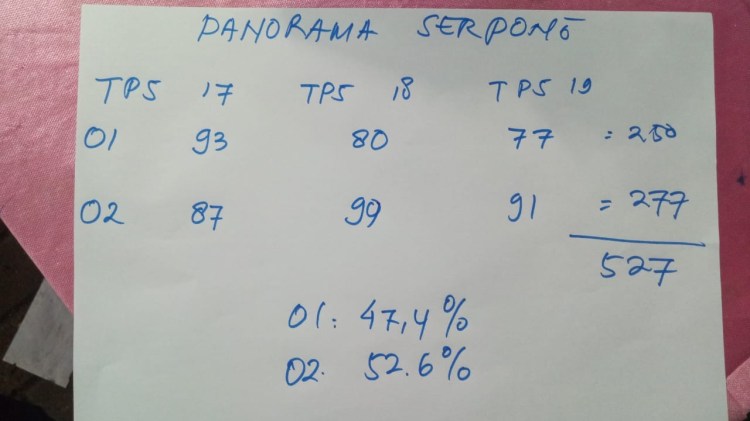 PANORAMA SERPONG
TPS 17 TPS 18 TPS 19
01 93 80 77 = 250
02 87 99 91 = 277
527
01: 47,4%
02. 52.6%